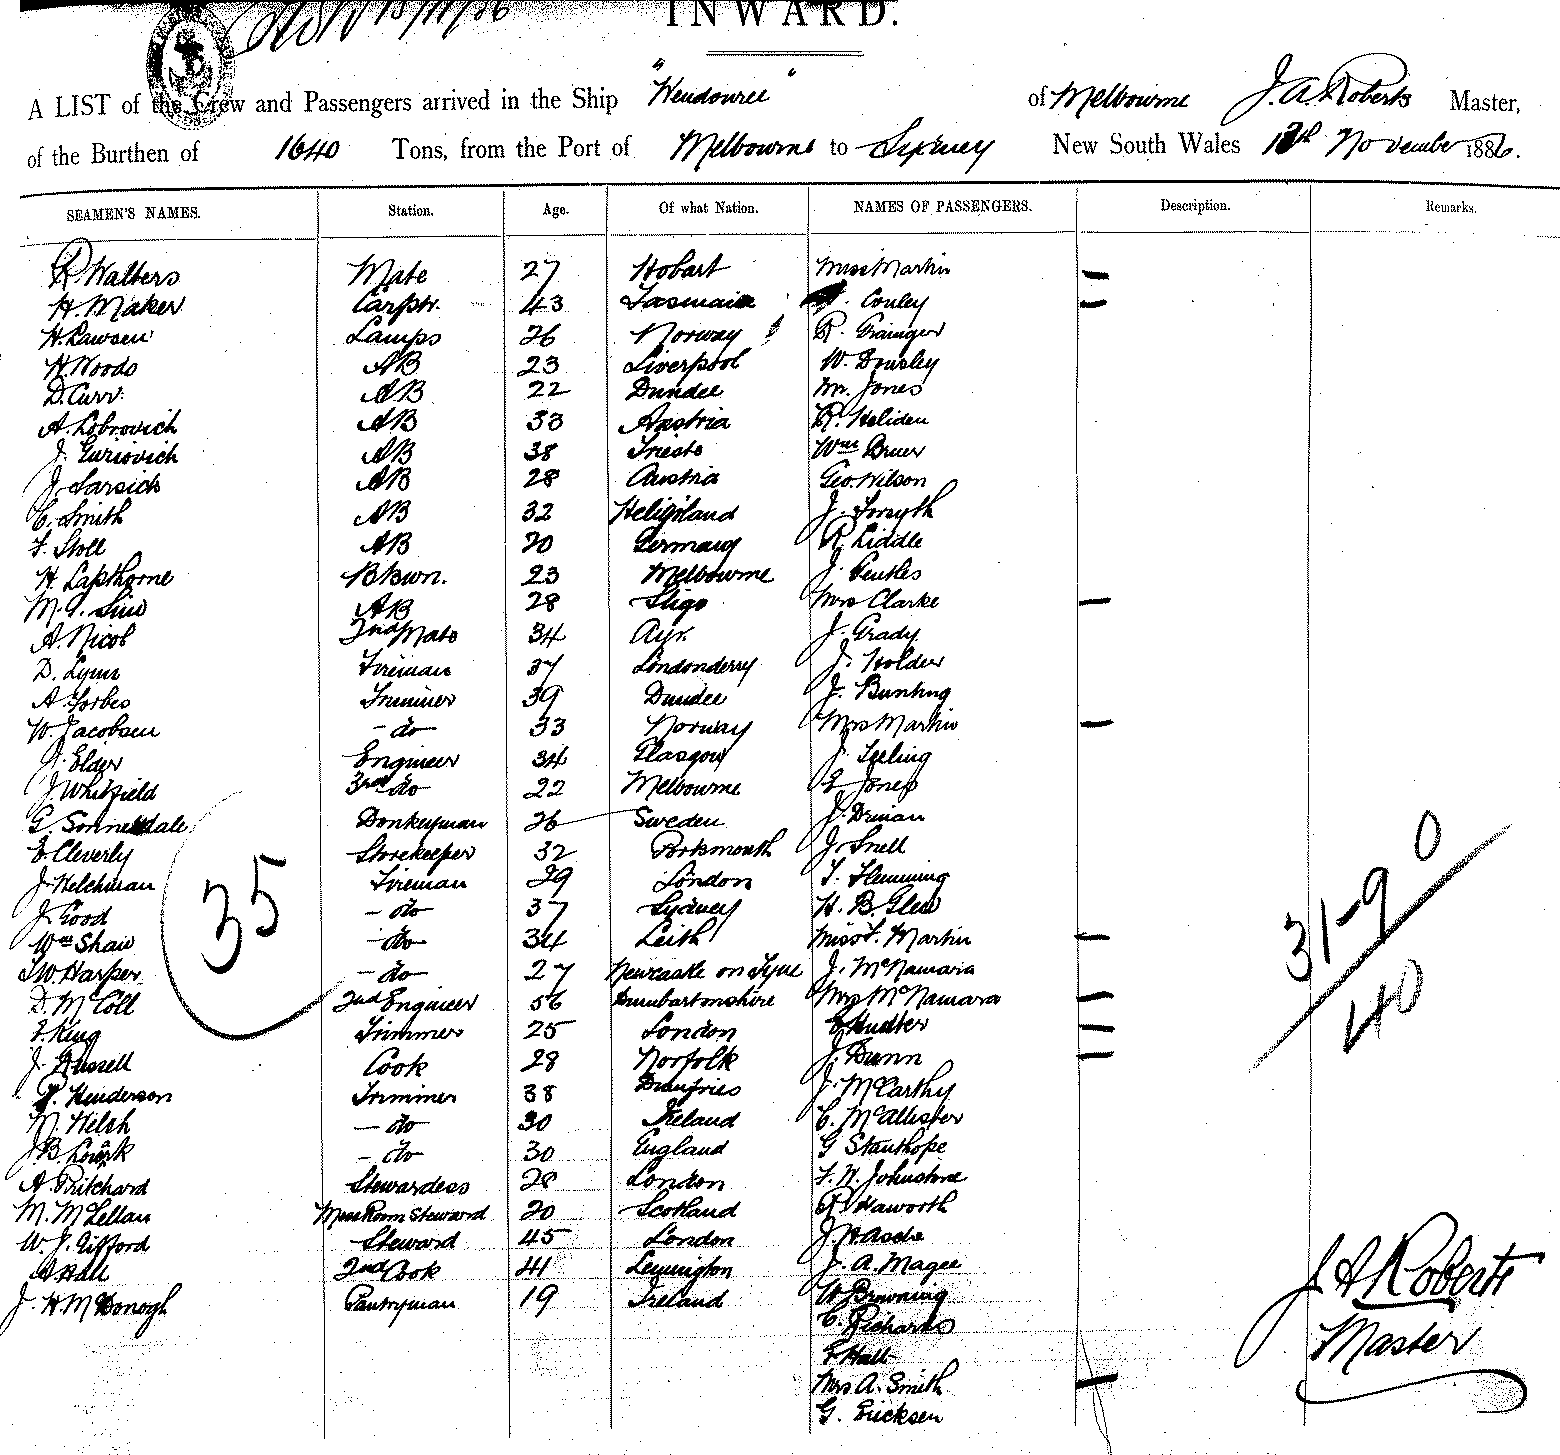 13/11/86
INWARD.
A LIST of the Crew and Passengers arrived in the Ship "Wendouree" of Melbourne J. A. Roberts Master,
of the Burthen of 1640 Tons, from the Port of Melbourne to Sydney New South Wales 13th November 1886.
SEAMEN'S NAMES. Station. Age. Of what Nation. NAMES OF PASSENGERS. Description. Remarks.
R. Walters Mate 27 Hobart Miss Martin
H. Maker Carptr. 43 Tasmaia Conley
H. Lawsen Lamps 26 Norway R. Grainger
H. Woods AB 23 Liverpool W. Dousley
D. Curr AB 22 Dundee Mr. Jones
A. Lobrovich AB 33 Austria R. Heliden
J. Guriovich AB 38 Trieste Wm Bruer
J. Sarsich AB 28 Austria Geo. Wilson
C. Smith AB 32 Heligoland J. Forsyth
F. Stoll AB 20 Germany R. Liddle
H. Lapthorne BBwn. 23 Melbourne J. Gentles
M. G. AB 28 Sligo Mrs Clarke
A. Nicol 2nd Mate 34 Ayr. J. Grady
D. Lynn Fireman 37 Londonderry J. Holder
A. Forbes Trimmer 39 Dundee J. Bunting
W. Jacobsen - do 33 Norway Mrs Martin
J. Elder Engineer 34 Glasgow J. Seeling
J. Whitfield 3rd do 22 Melbourne E Jones
G. Sonnesdale Donkeyman 26 Sweden J. Drinan
E. Cleverly Storekeeper 32 Portsmouth J. Snell
J. Helchman Fireman 29 London T. Flemming
J. Good - do 37 Sydney H. B. Glew
Wm Shaw - do 34 Leith Miss F. Martin
T. W. Harper - do 27 Newcastle on Tyne J. McNamara
D. McColl 2nd Engineer 56 Dumbartonshire Mrs McNamara
F. King Trimmer 25 London E Hudter
J. Russell Cook 28 Norfolk J. Dunn
R. Henderson Trimmer 38 Dumfries J. McCarthy
N. Welsh - do 30 Ireland C. McAllister
J. B. - do 30 England G Stanthope
A. Pritchard Stewardess 28 London F. W. Johnstone
M. McLellan Mess Room Steward 20 Scotland R Haworth
W. J. Gifford Steward 45 London J Hasche
A Hall 2nd Cook 41 Lemington J. A. Magee
J. H McDonogh Pantryman 19 Ireland W Browning
C. Richards
F Hall
Mrs A. Smith
G. Ericksen
35
31-9 0
40
J A Roberts
Master